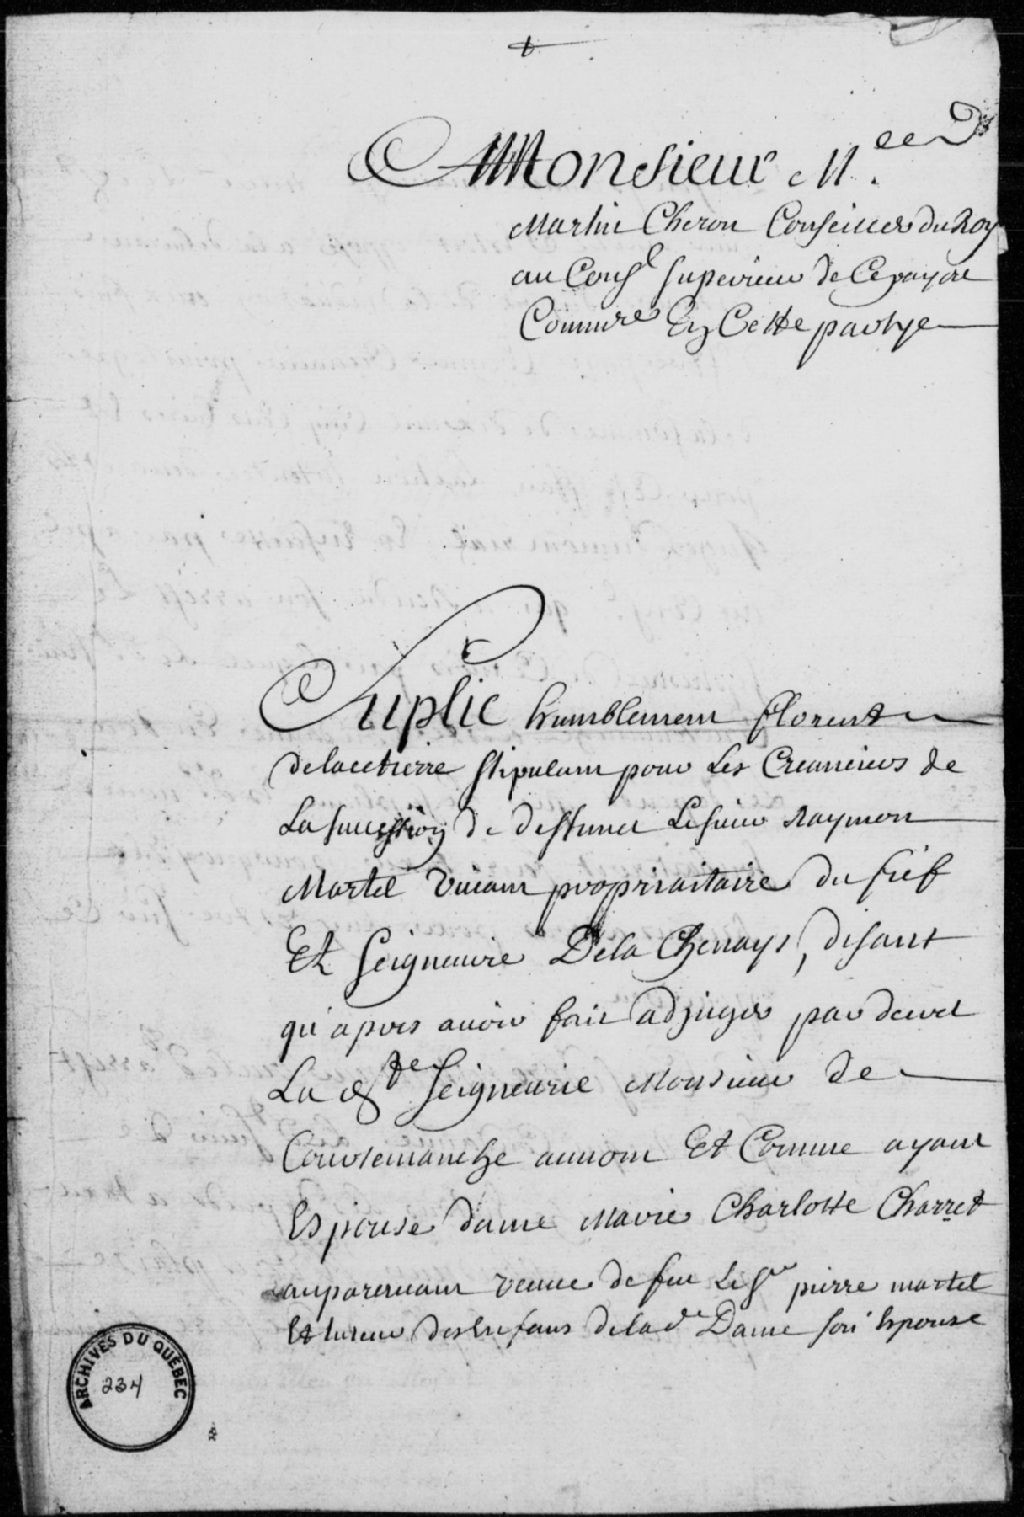 Monsieur Mre
Martin Cheron Conseiller du Roy
au Consl superieur de Ce pays
Commre En Cette partye
Suplie humblement florent
delacetierre stipulant pour Les Creanciers de
La succession de deffunct Le sieur Raymon
Martel vivant propriaitaire du fief
Et Seigneurie Dela Chenays, disant
qu'apres avoir fait adjuger par decret
La de Seigneurie Monsieur de
Courtemanche au nom Et Comme ayant
Espouse dame Marie Charlotte Charret
auparavant veuve de feu Le Sr pierre martel
Et tuteur des Enfans de la de Dame son Espouse
ARCHIVES DU QUÉBEC
234